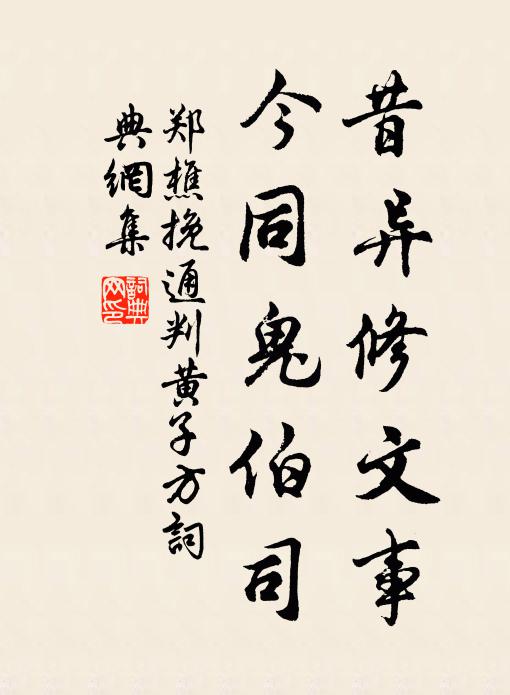 昔异修文事
今同鬼伯司
郑樵挽通判黄子方詞
典網集
詞典网印